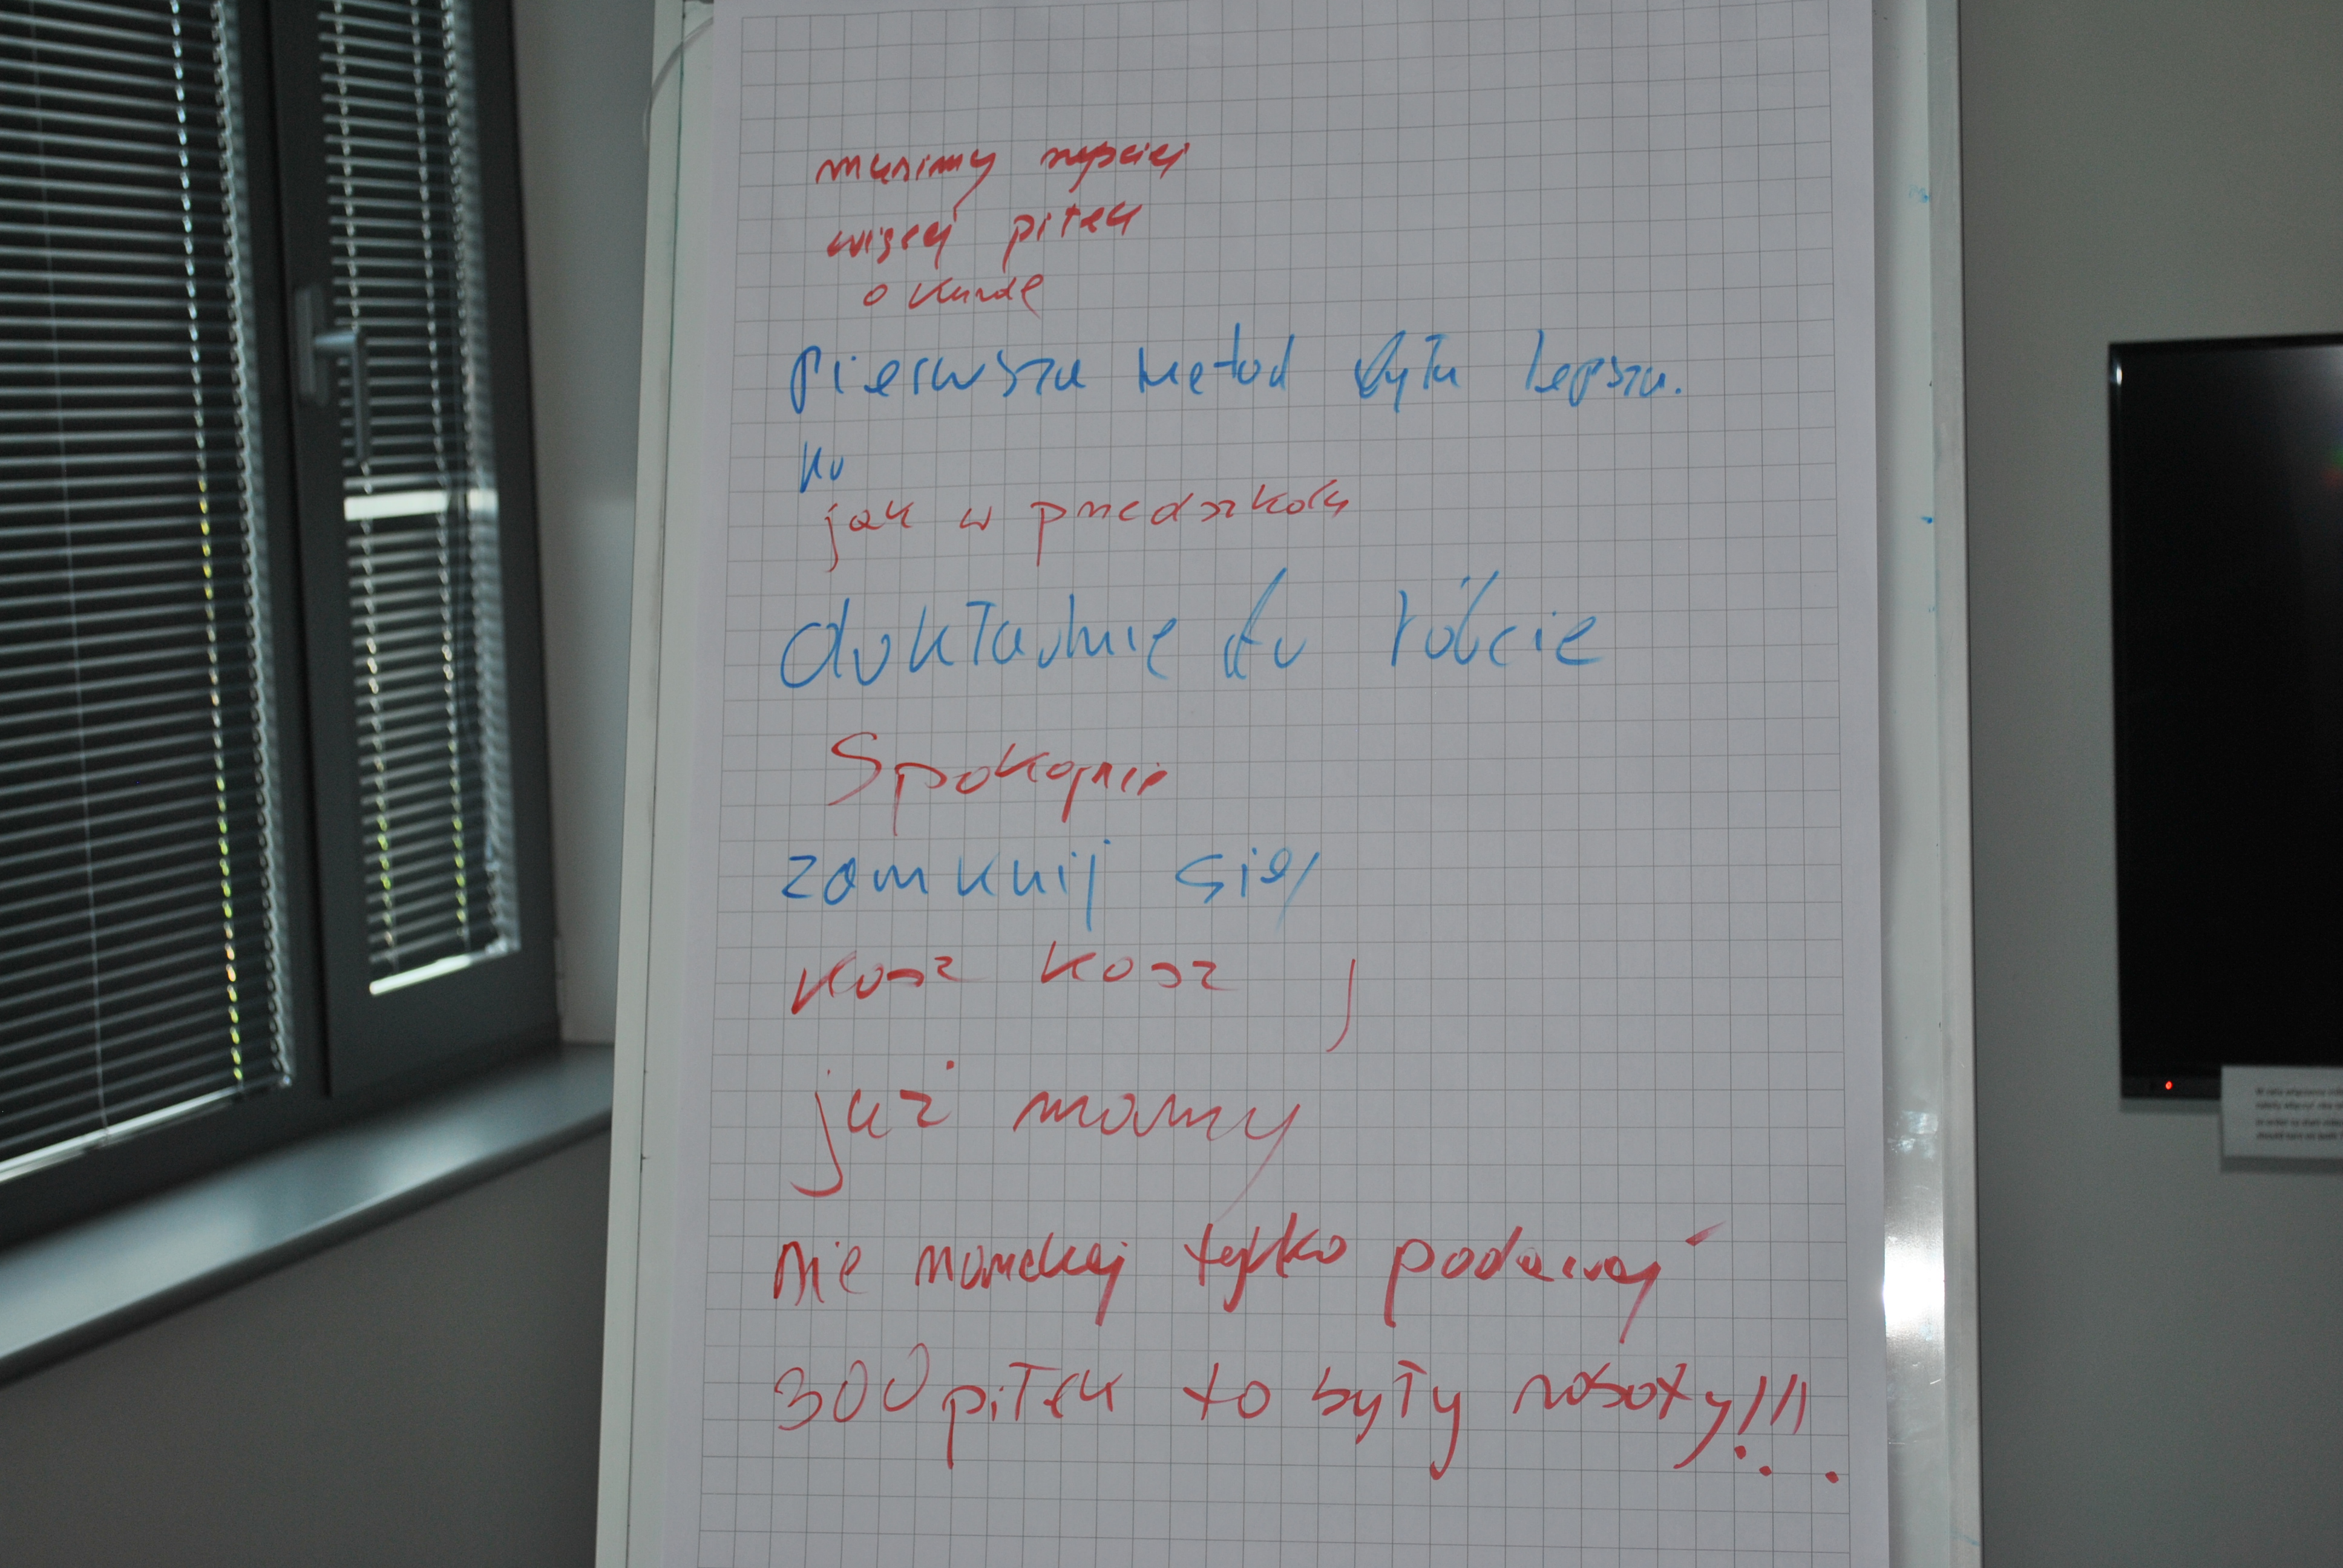 musimy szybciej
więcej piłek
o kurde
pierwsza metod była lepsza.
ku
jak w przedszkolu
dokładnie to róbcie
Spokojnie
zamknij się
kosz kosz j
już mamy
nie narzekaj tylko podawaj
300 piłek to były roboty!!!